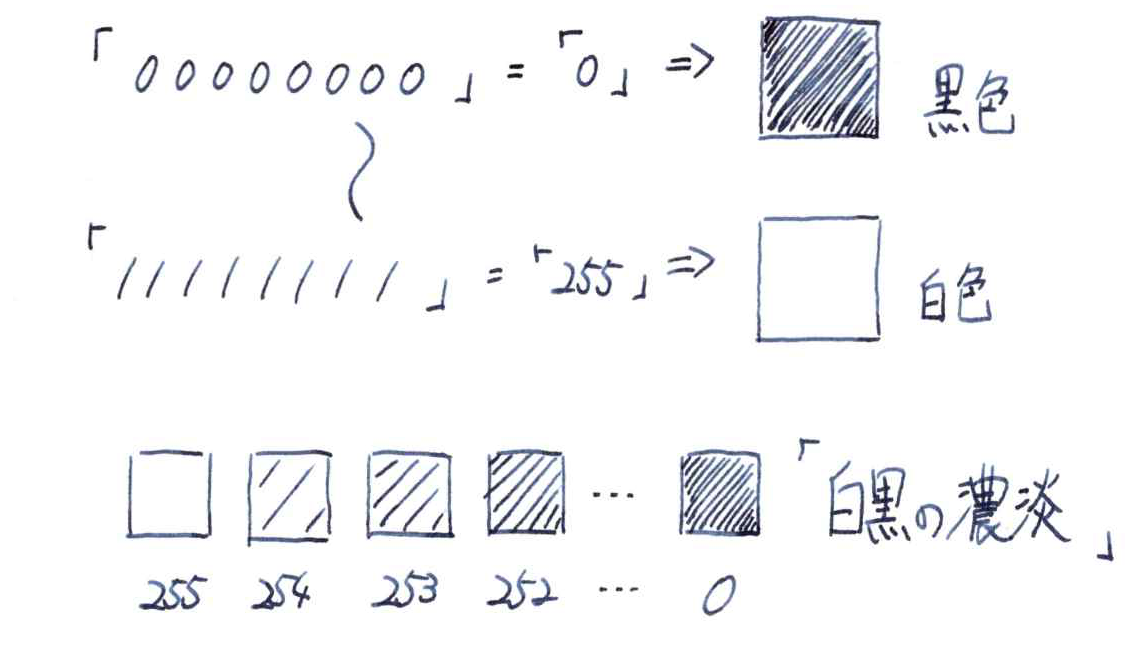 「00000000」=「0」⇒ 黒色
〜
「11111111」=「255」⇒ 白色
… 「白黒の濃淡」
255 254 253 252 … 0